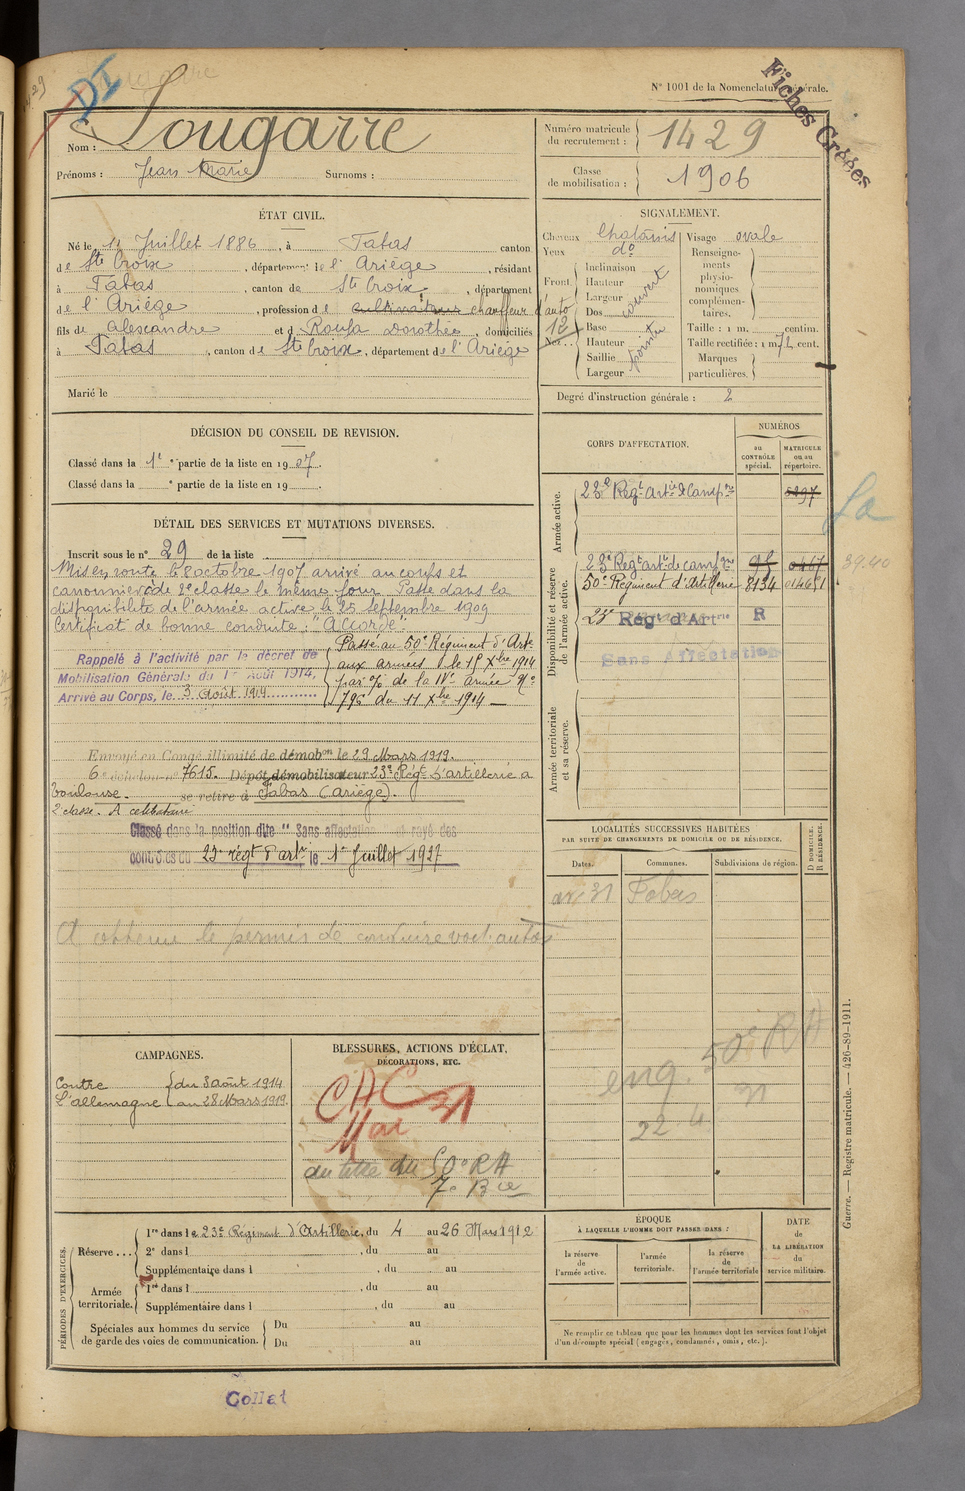 DI
Fiches Créées
N° 1001 de la Nomenclature générale.
Nom : Lougarre
Prénoms : Jean Marie Surnoms :
Numéro matricule du recrutement : 1429
Classe de mobilisation : 1906
ÉTAT CIVIL.
Né le 11 Juillet 1886, à Fabas canton
de Ste Croix, département de l'Ariège, résidant
à Fabas, canton de Ste Croix, département
de l'Ariège, profession de cultivateur chauffeur d'auto
fils de Alexandre et d Dorothée, domiciliés
à Fabas, canton de Ste Croix, département de l'Ariège
Marié le
SIGNALEMENT.
Cheveux Chatains
Yeux d°
Front.
Inclinaison
Hauteur
Largeur
Nez..
Dos
Base
Hauteur
Saillie
Largeur
Visage ovale
Renseignements physionomiques complémentaires.
Taille : 1 m. centim.
Taille rectifiée : 1 m 72 cent.
Marques particulières.
Degré d'instruction générale : 2
DÉCISION DU CONSEIL DE REVISION.
Classé dans la 1e partie de la liste en 1907.
Classé dans la e partie de la liste en 19
DÉTAIL DES SERVICES ET MUTATIONS DIVERSES.
Inscrit sous le n° 29 de la liste
Mis en route le 8 octobre 1907 arrivé au corps et
canonnier de 2e classe le même jour. Passé dans la
disponibilité de l'armée active le 25 septembre 1909
Certificat de bonne conduite : "Accordé".
Rappelé à l'activité par le décret de
Mobilisation Générale du 1er Août 1914.
Arrivé au Corps, le 3 Août 1914
Passé au 50e Régiment d'Artie
aux armées le 15 Xbre 1914
par o/ de la IVe armée No
796 du 11 Xbre 1914
Envoyé en Congé illimité de démobon le 29 Mars 1919.
6e échelon n° 7615. Dépôt démobilisateur 23e Régt d'artillerie à
Toulouse. se retire à Fabas (Ariège).
2e classe. A célibataire
Classé dans la position dite "Sans affectation et rayé des
contrôles du 23e régt d'artie le 1er Juillet 1927
A obtenu le permis de conduire voit. autos
CORPS D'AFFECTATION.
NUMÉROS
au CONTRÔLE spécial.
MATRICULE ou au répertoire.
Armée active.
23e Régt Artie de campgne 5297
Disponibilité et réserve de l'armée active.
23e Régt artie de campgne 95 0467
50e Régiment d'Artillerie 8134 014681
23e Régt d'Artrie R
Sans Affectation
Armée territoriale et sa réserve.
39.40
LOCALITÉS SUCCESSIVES HABITÉES
PAR SUITE DE CHANGEMENTS DE DOMICILE OU DE RÉSIDENCE.
Dates. Communes. Subdivisions de région. D DOMICILE. R RÉSIDENCE.
31 Fabas
50e RA
31
22 4
CAMPAGNES.
Contre l'allemagne
du 3 août 1914
au 28 Mars 1919.
BLESSURES, ACTIONS D'ÉCLAT,
DÉCORATIONS, ETC.
CAC 31
Mai
au titre du 50e RA
7e Bie
PÉRIODES D'EXERCICES.
Réserve ...
1re dans le 23e Régiment d'Artillerie, du 4 au 26 Mars 1912
2e dans l , du au
Supplémentaire dans l , du au
Armée territoriale.
1re dans l , du au
Supplémentaire dans l , du au
Spéciales aux hommes du service de garde des voies de communication.
Du au
Du au
ÉPOQUE
À LAQUELLE L'HOMME DOIT PASSER DANS :
la réserve de l'armée active.
l'armée territoriale.
la réserve de l'armée territoriale
DATE de LA LIBÉRATION du service militaire.
Ne remplir ce tableau que pour les hommes dont les services font l'objet
d'un décompte spécial (engagés, condamnés, omis, etc.).
Guerre. — Registre matricule. — 426-89-1911.
Collat